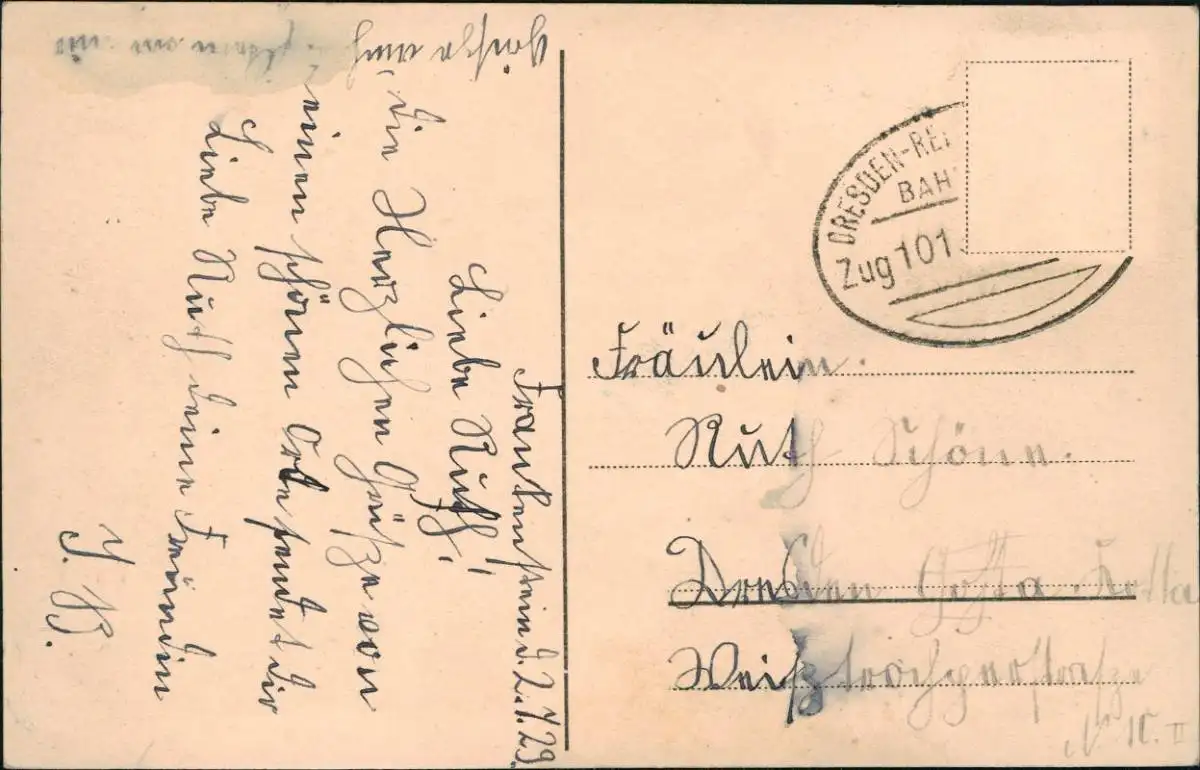 Frauenstein d. 2.7.29.
Liebe Ruth!
die Herzlichen Grüße von
einen schönen Orte sendet dir
Liebe Ruth deine Freundin
J. B.
Grüße auch
DRESDEN-REI
BAH
Zug 101
Fräulein.
Ruth Schöne.
Dresden Cotta
Weißtropperstraße
N 10. II